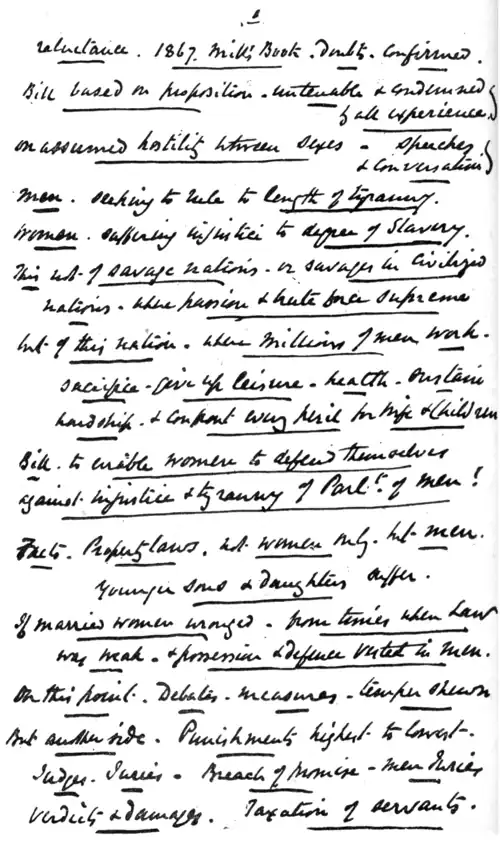 reluctance. 1867. Mill's Book. Doubts. Confirmed.
Bill based on proposition - untenable & condemned
by all experience
on assumed hostility between sexes - speeches
& conversation
Men. seeking to rule to length of tyranny.
Women. suffering injustice to degree of Slavery.
This not of savage nations - or savages in civilized
nations - where passion & brute force supreme
but of this nation - where millions of men work -
sacrifice - give up leisure - health - sustain
hardship - & confront every peril for wife & children
Bill - to enable women to defend themselves
against injustice & tyranny of Parlt. of men!
Facts. Property laws, not women only - but men.
younger sons & daughters suffer.
If married women wronged - from times when Law
was weak - & possession & defence vested in men.
On this point - Debates - measures - temper shewn
But another side - Punishments highest to lowest -
Judges. Juries - Breach of Promise - men Juries
verdicts & damages. Taxation of servants.